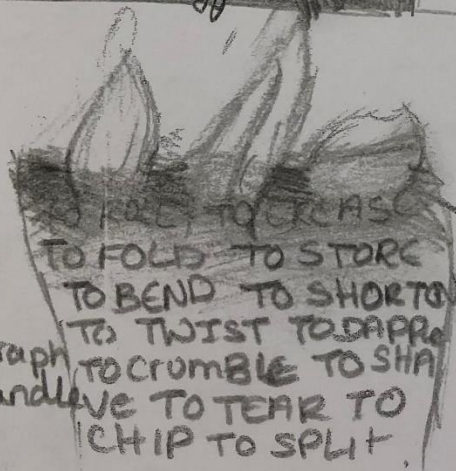 TO ROLL, TO CREASE
TO FOLD TO STORE
TO BEND TO SHORTEN
TO TWIST TO DAPP
raph TO CrUMBLE TO SHA
andle VE TO TEAR TO
CHIP TO SPLIt